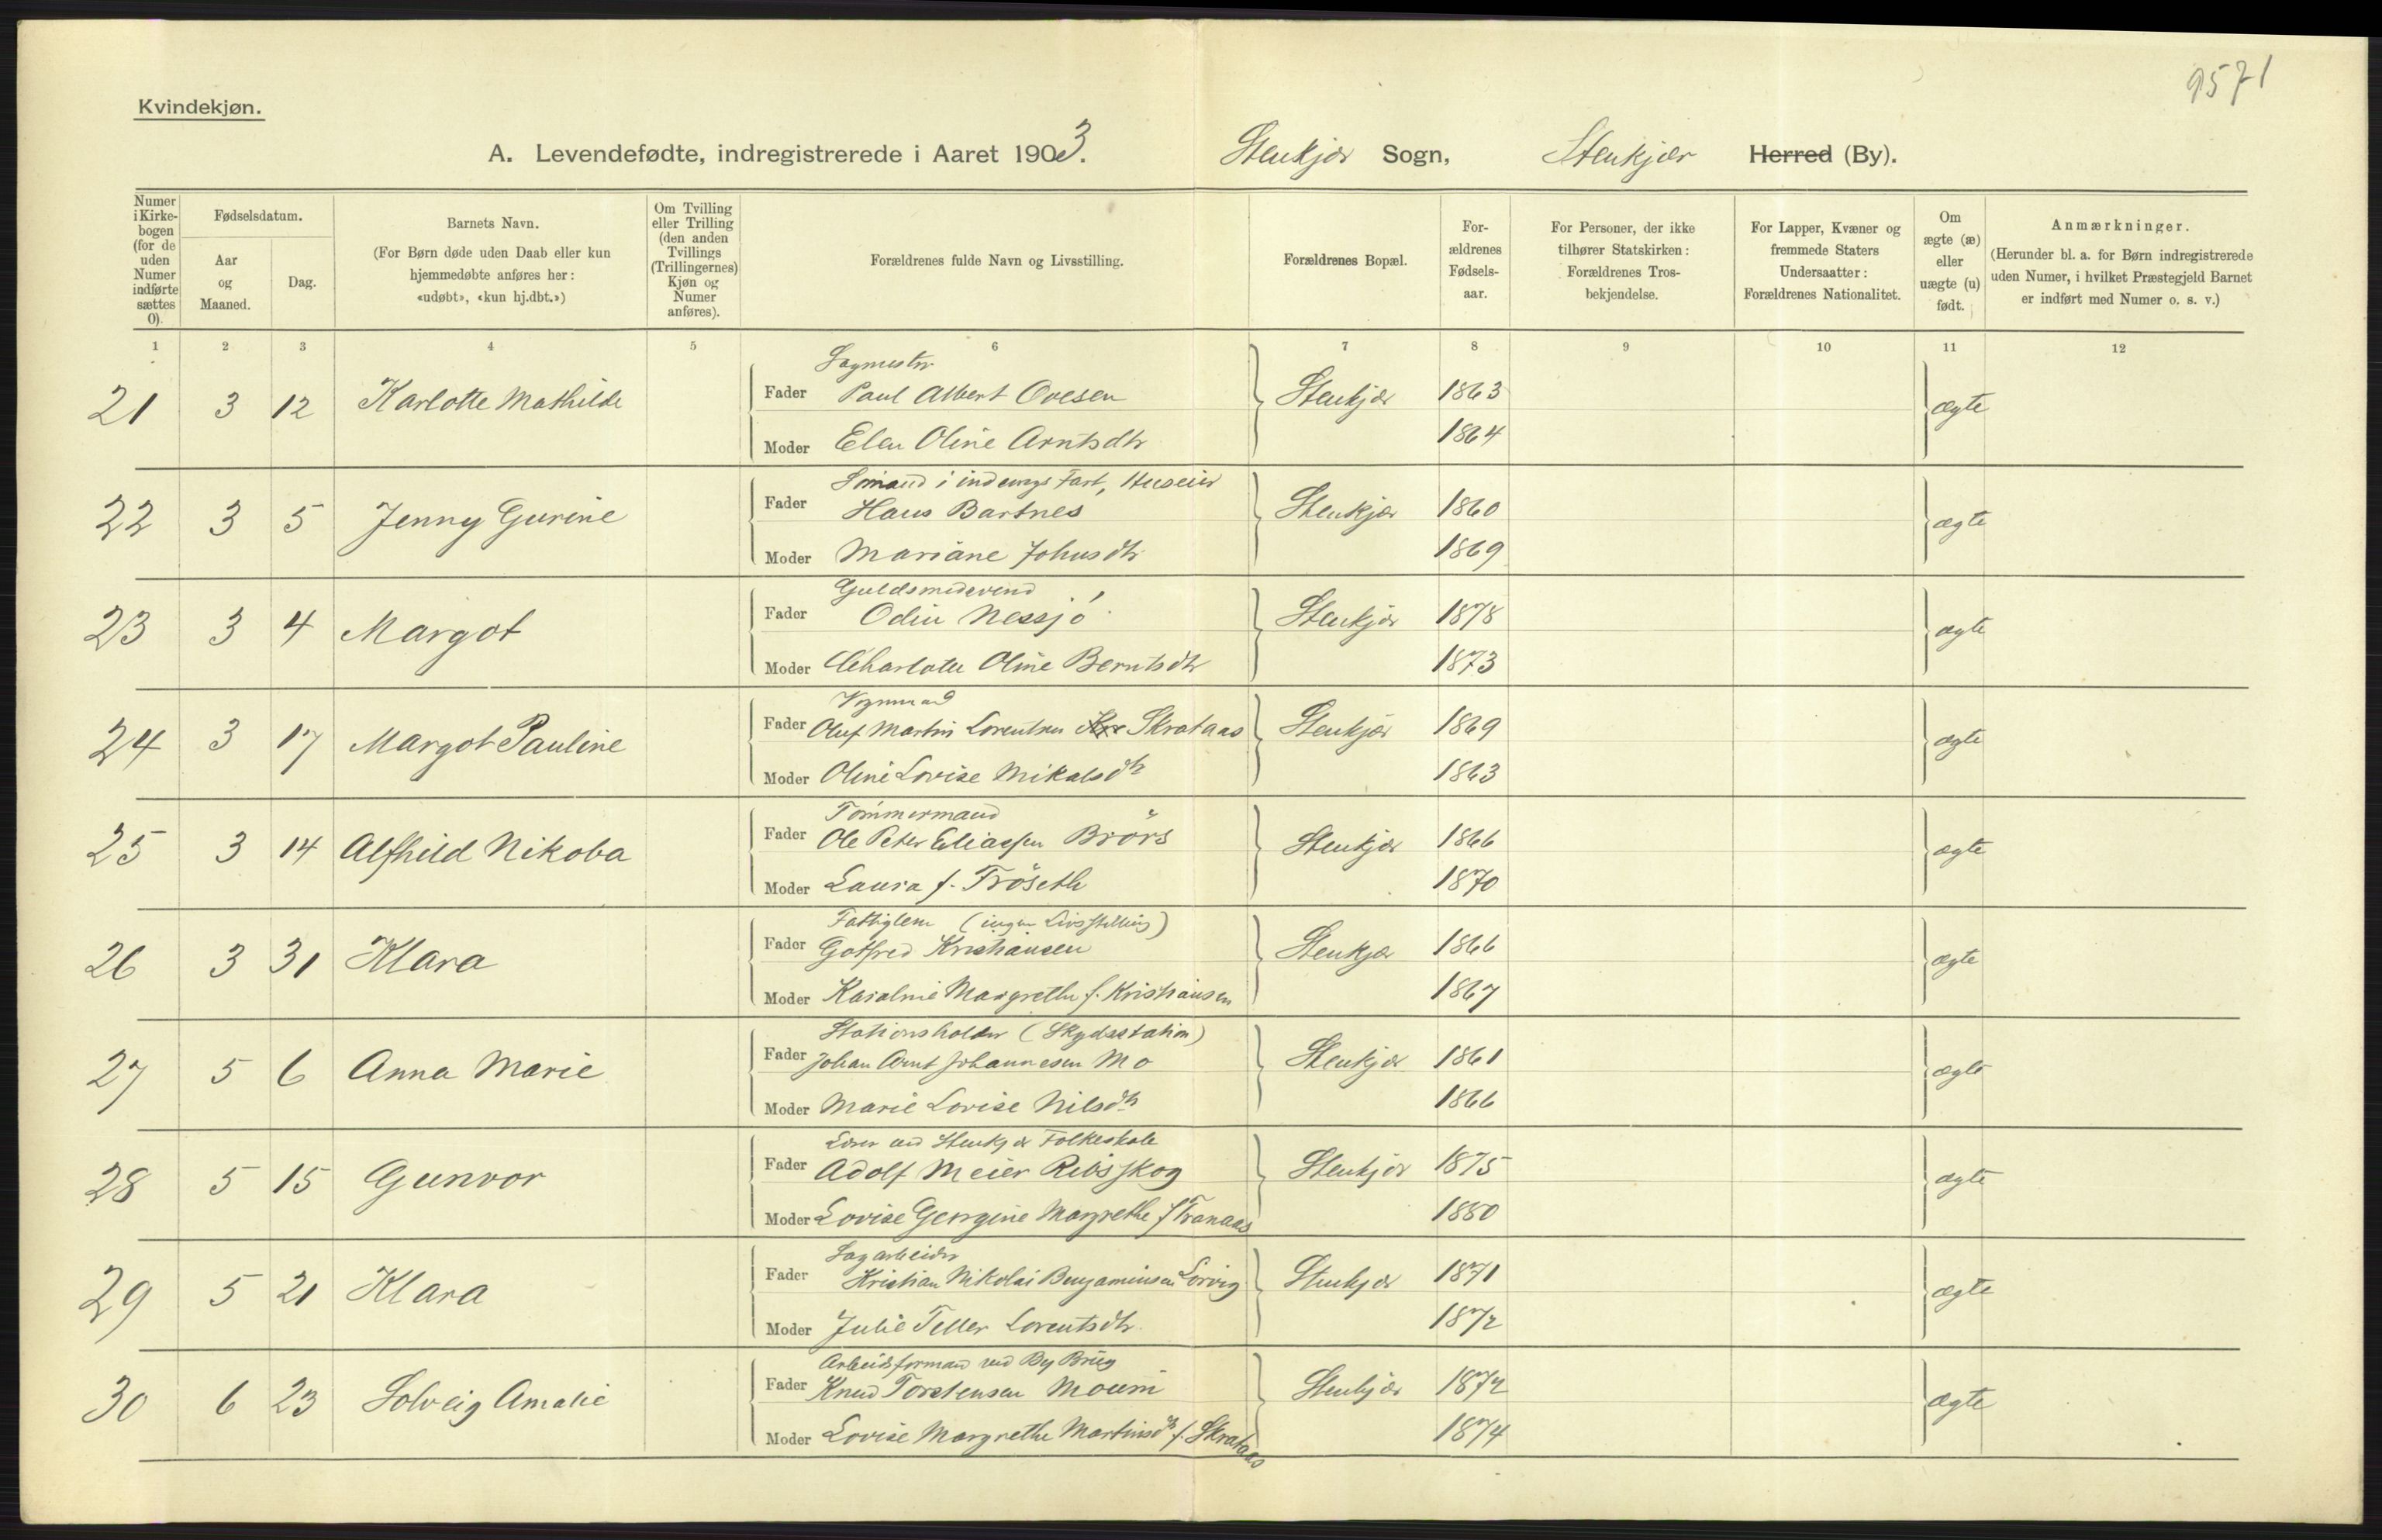 9571
Kvindekjøn.
A. Levendefødte, indregistrerede i Aaret 1903. Stenkjær Sogn, Stenkjær Herred (By).
Numer i Kirkebogen (for de uden Numer indførte sættes 0).
Fødselsdatum.
Aar og Maaned.
Dag.
Barnets Navn.
(For Børn døde uden Daab eller kun hjemmedøbte anføres her: «udøbt», «kun hj.dbt.»)
Om Tvilling eller Trilling (den anden Tvillings (Trillingernes) Kjøn og Numer anføres).
Forældrenes fulde Navn og Livsstilling.
Forældrenes Bopæl.
Forældrenes Fødselsaar.
For Personer, der ikke tilhører Statskirken: Forældrenes Trosbekjendelse.
For Lapper, Kvæner og fremmede Staters Undersaatter: Forældrenes Nationalitet.
Om ægte (æ) eller uægte (u) født.
Anmærkninger.
(Herunder bl. a. for Børn indregistrerede uden Numer, i hvilket Præstegjeld Barnet er indført med Numer o. s. v.)
1 2 3 4 5 6 7 8 9 10 11 12
Sagmester
21 3 12 Karlotte Mathilde Fader Paul Albert Ovesen Stenkjær 1863 ægte
Moder Elen Oline Arntsdtr 1864
Sømand i indenrigs Fart, Huseier
22 3 5 Jenny Gurine Fader Hans Bartnes Stenkjær 1860 ægte
Moder Mariane Johnsdtr 1869
Guldsmedsvend
23 3 4 Margot Fader Odin Nessjó Stenkjær 1878 ægte
Moder Charlotte Oline Berntsdtr 1873
Vognmand
24 3 17 Margot Pauline Fader Oluf Martin Lorentsen Skrataas Stenkjær 1869 ægte
Moder Oline Lovise Mikalsdtr 1863
Tømmermand
25 3 14 Alfhild Nikoba Fader Ole Peter Eliassen Brörs Stenkjær 1866 ægte
Moder Laura f. Tröseth 1870
Fattiglem (ingen Livsstilling)
26 3 31 Klara Fader Gotfred Kristiansen Stenkjær 1866 ægte
Moder Karoline Margrethe f. Kristiansen 1867
Stationsholder (Skydsstation)
27 5 6 Anna Marie Fader Johan Arnt Johannesen Mo Stenkjær 1861 ægte
Moder Marie Lovise Nilsdtr 1866
Lærer ved Stenkjær Folkeskole
28 5 15 Gunvor Fader Adolf Meier Ribsskog Stenkjær 1875 ægte
Moder Lovise Georgine Margrethe f Tranaas 1880
Sagarbeider
29 5 21 Klara Fader Kristian Nikolai Benjaminsen Lorvig Stenkjær 1871 ægte
Moder Julie Teller Lorentsdtr. 1872
Arbeidsformand ved By Brug
30 6 23 Solveig Amalie Fader Knud Torstensen Moum Stenkjær 1872 ægte
Moder Lovise Margrethe Martinsdtr f. Skrataas 1874